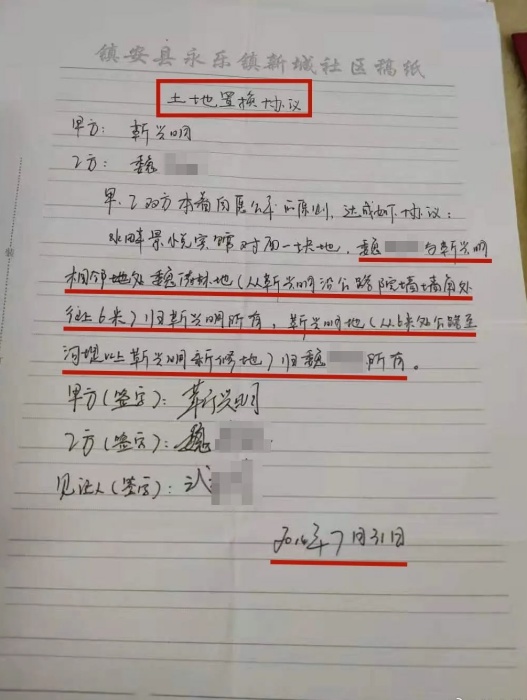 镇安县永乐镇新城社区稿纸
土地置换协议
甲方: 靳兴明
乙方: 魏
甲、乙双方本着自愿公平的原则, 达成如下协议:
水畔景悦宾馆对面一块地, 魏 与靳兴明
相邻地处魏 地(从靳兴明沿公路院墙墙角处
往上6米)归靳兴明所有, 靳兴明地(从6米处公路至
河堤以上靳兴明新修地)归魏 所有。
甲方(签字): 靳兴明
乙方(签字): 魏
见证人(签字):
2016年7月31日
装